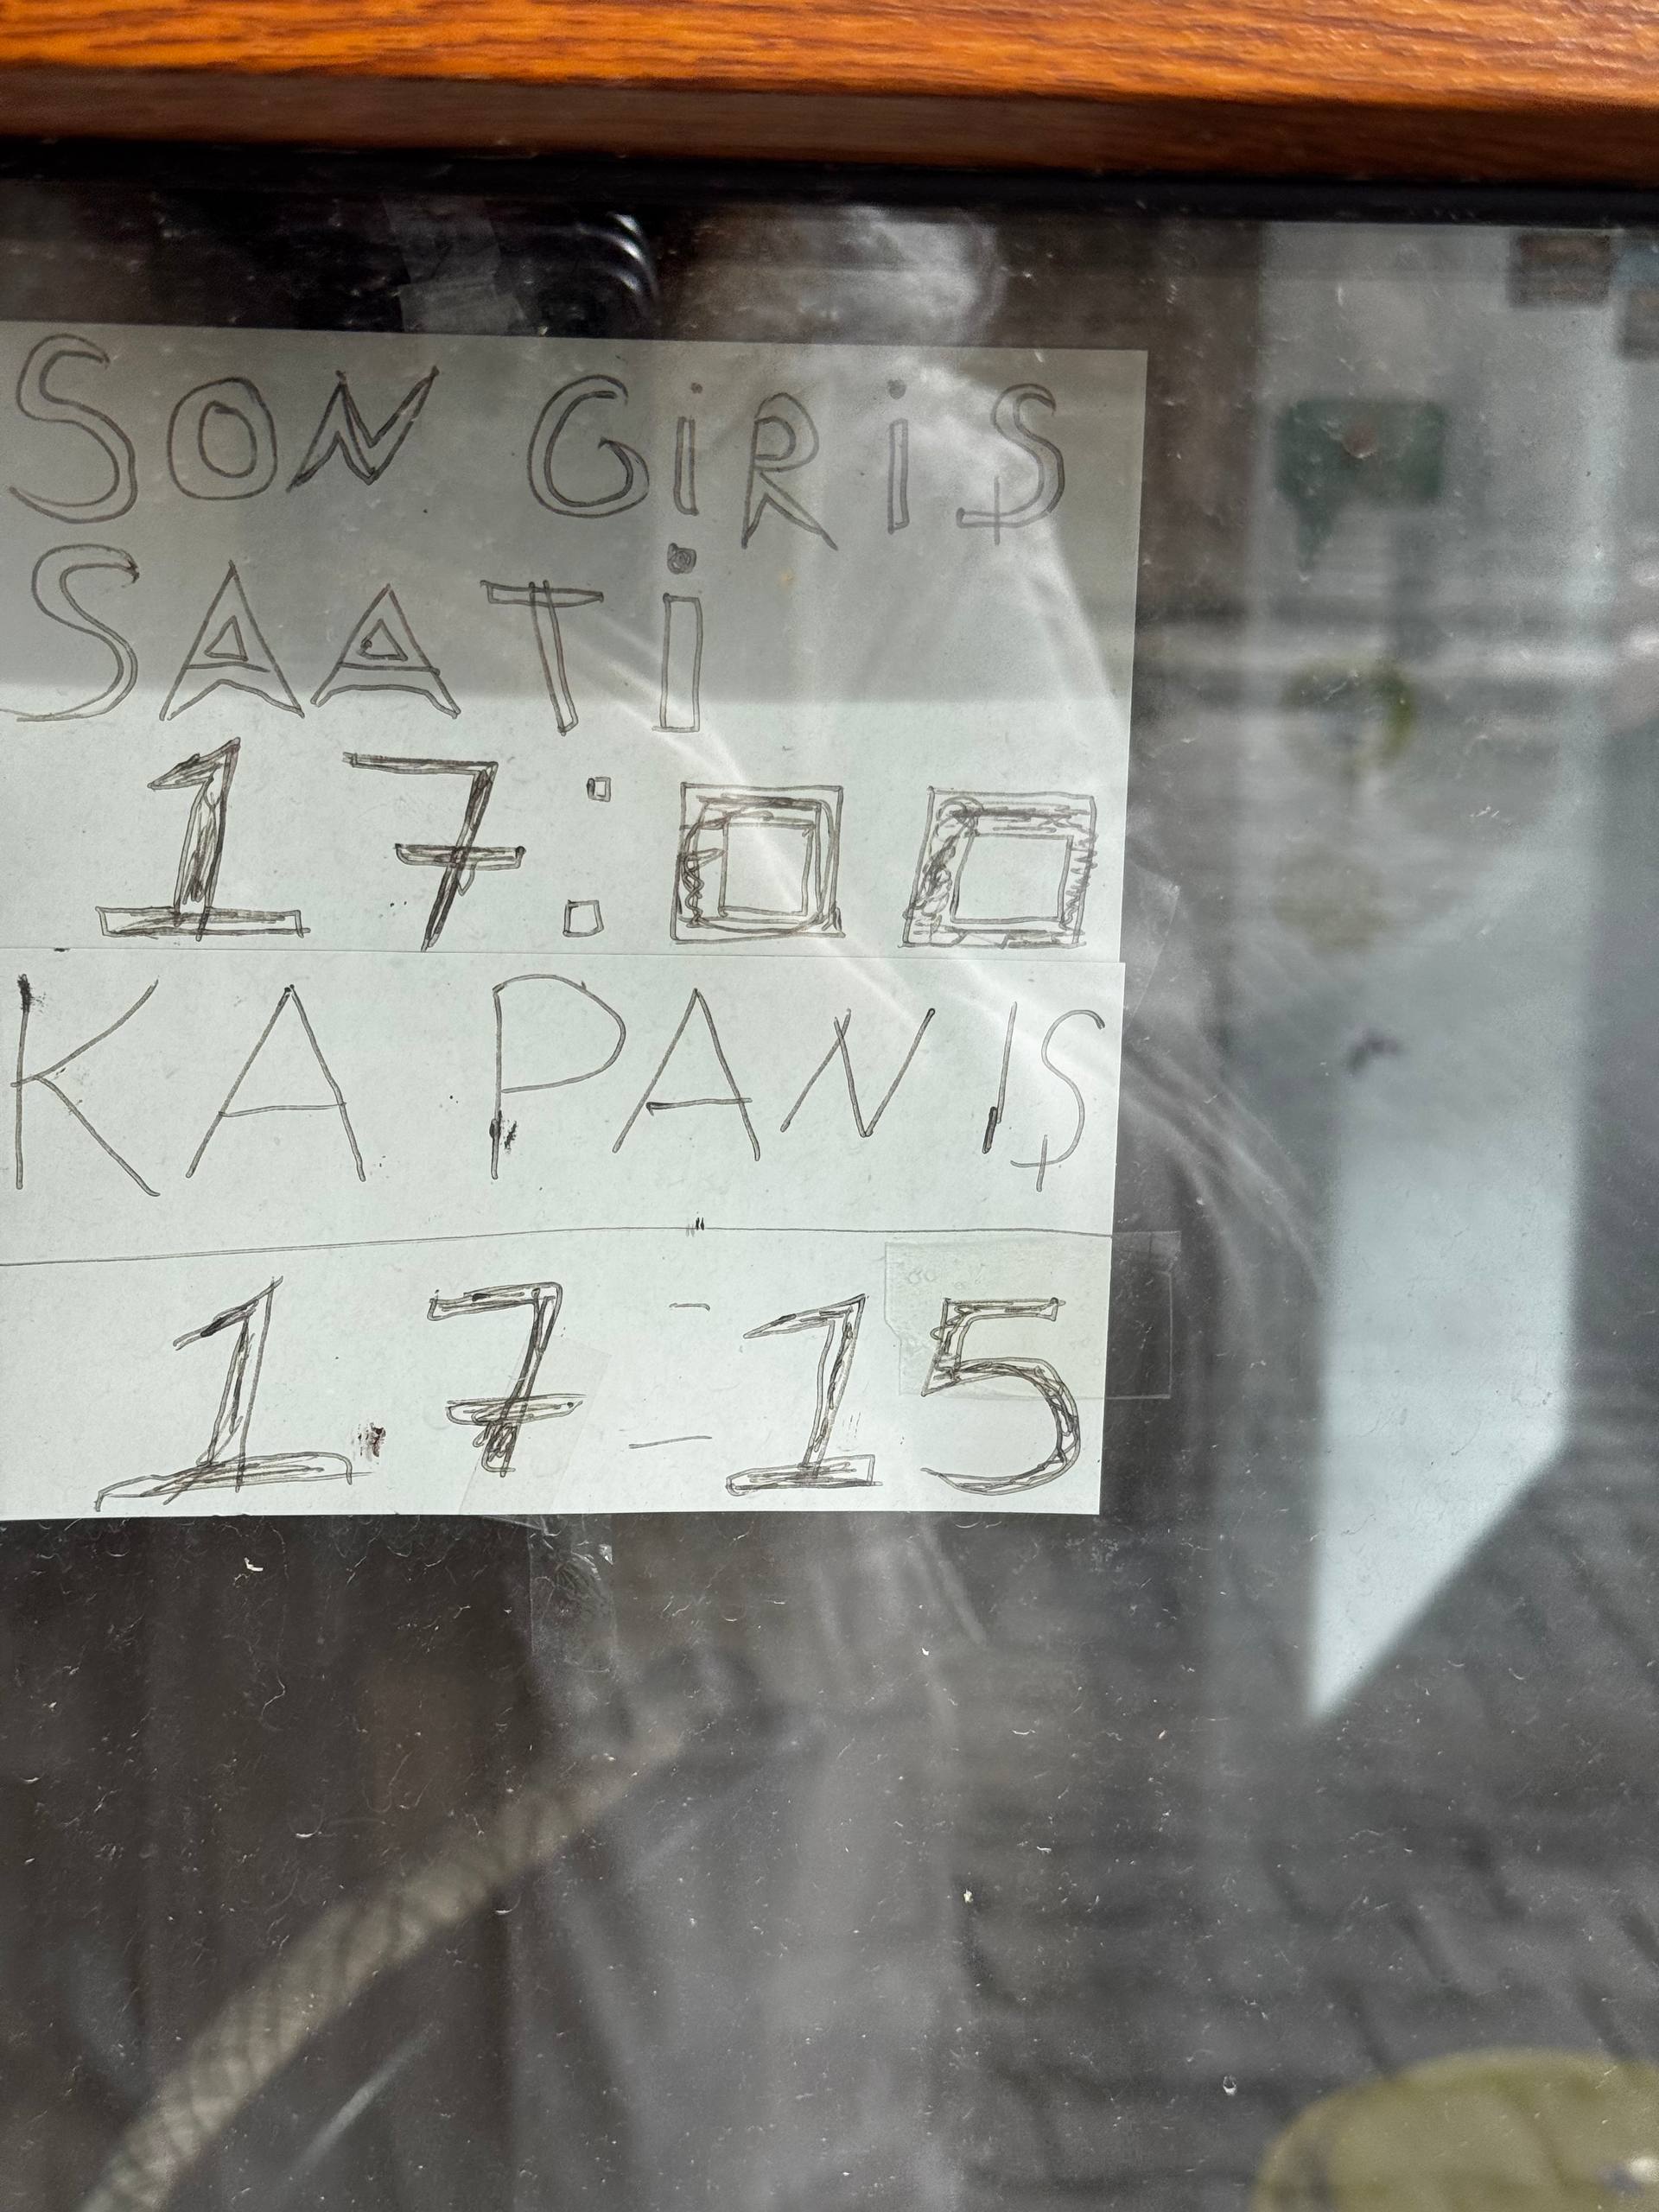 SON GİRİŞ
SAATİ
17:00
KAPANIŞ
17:15